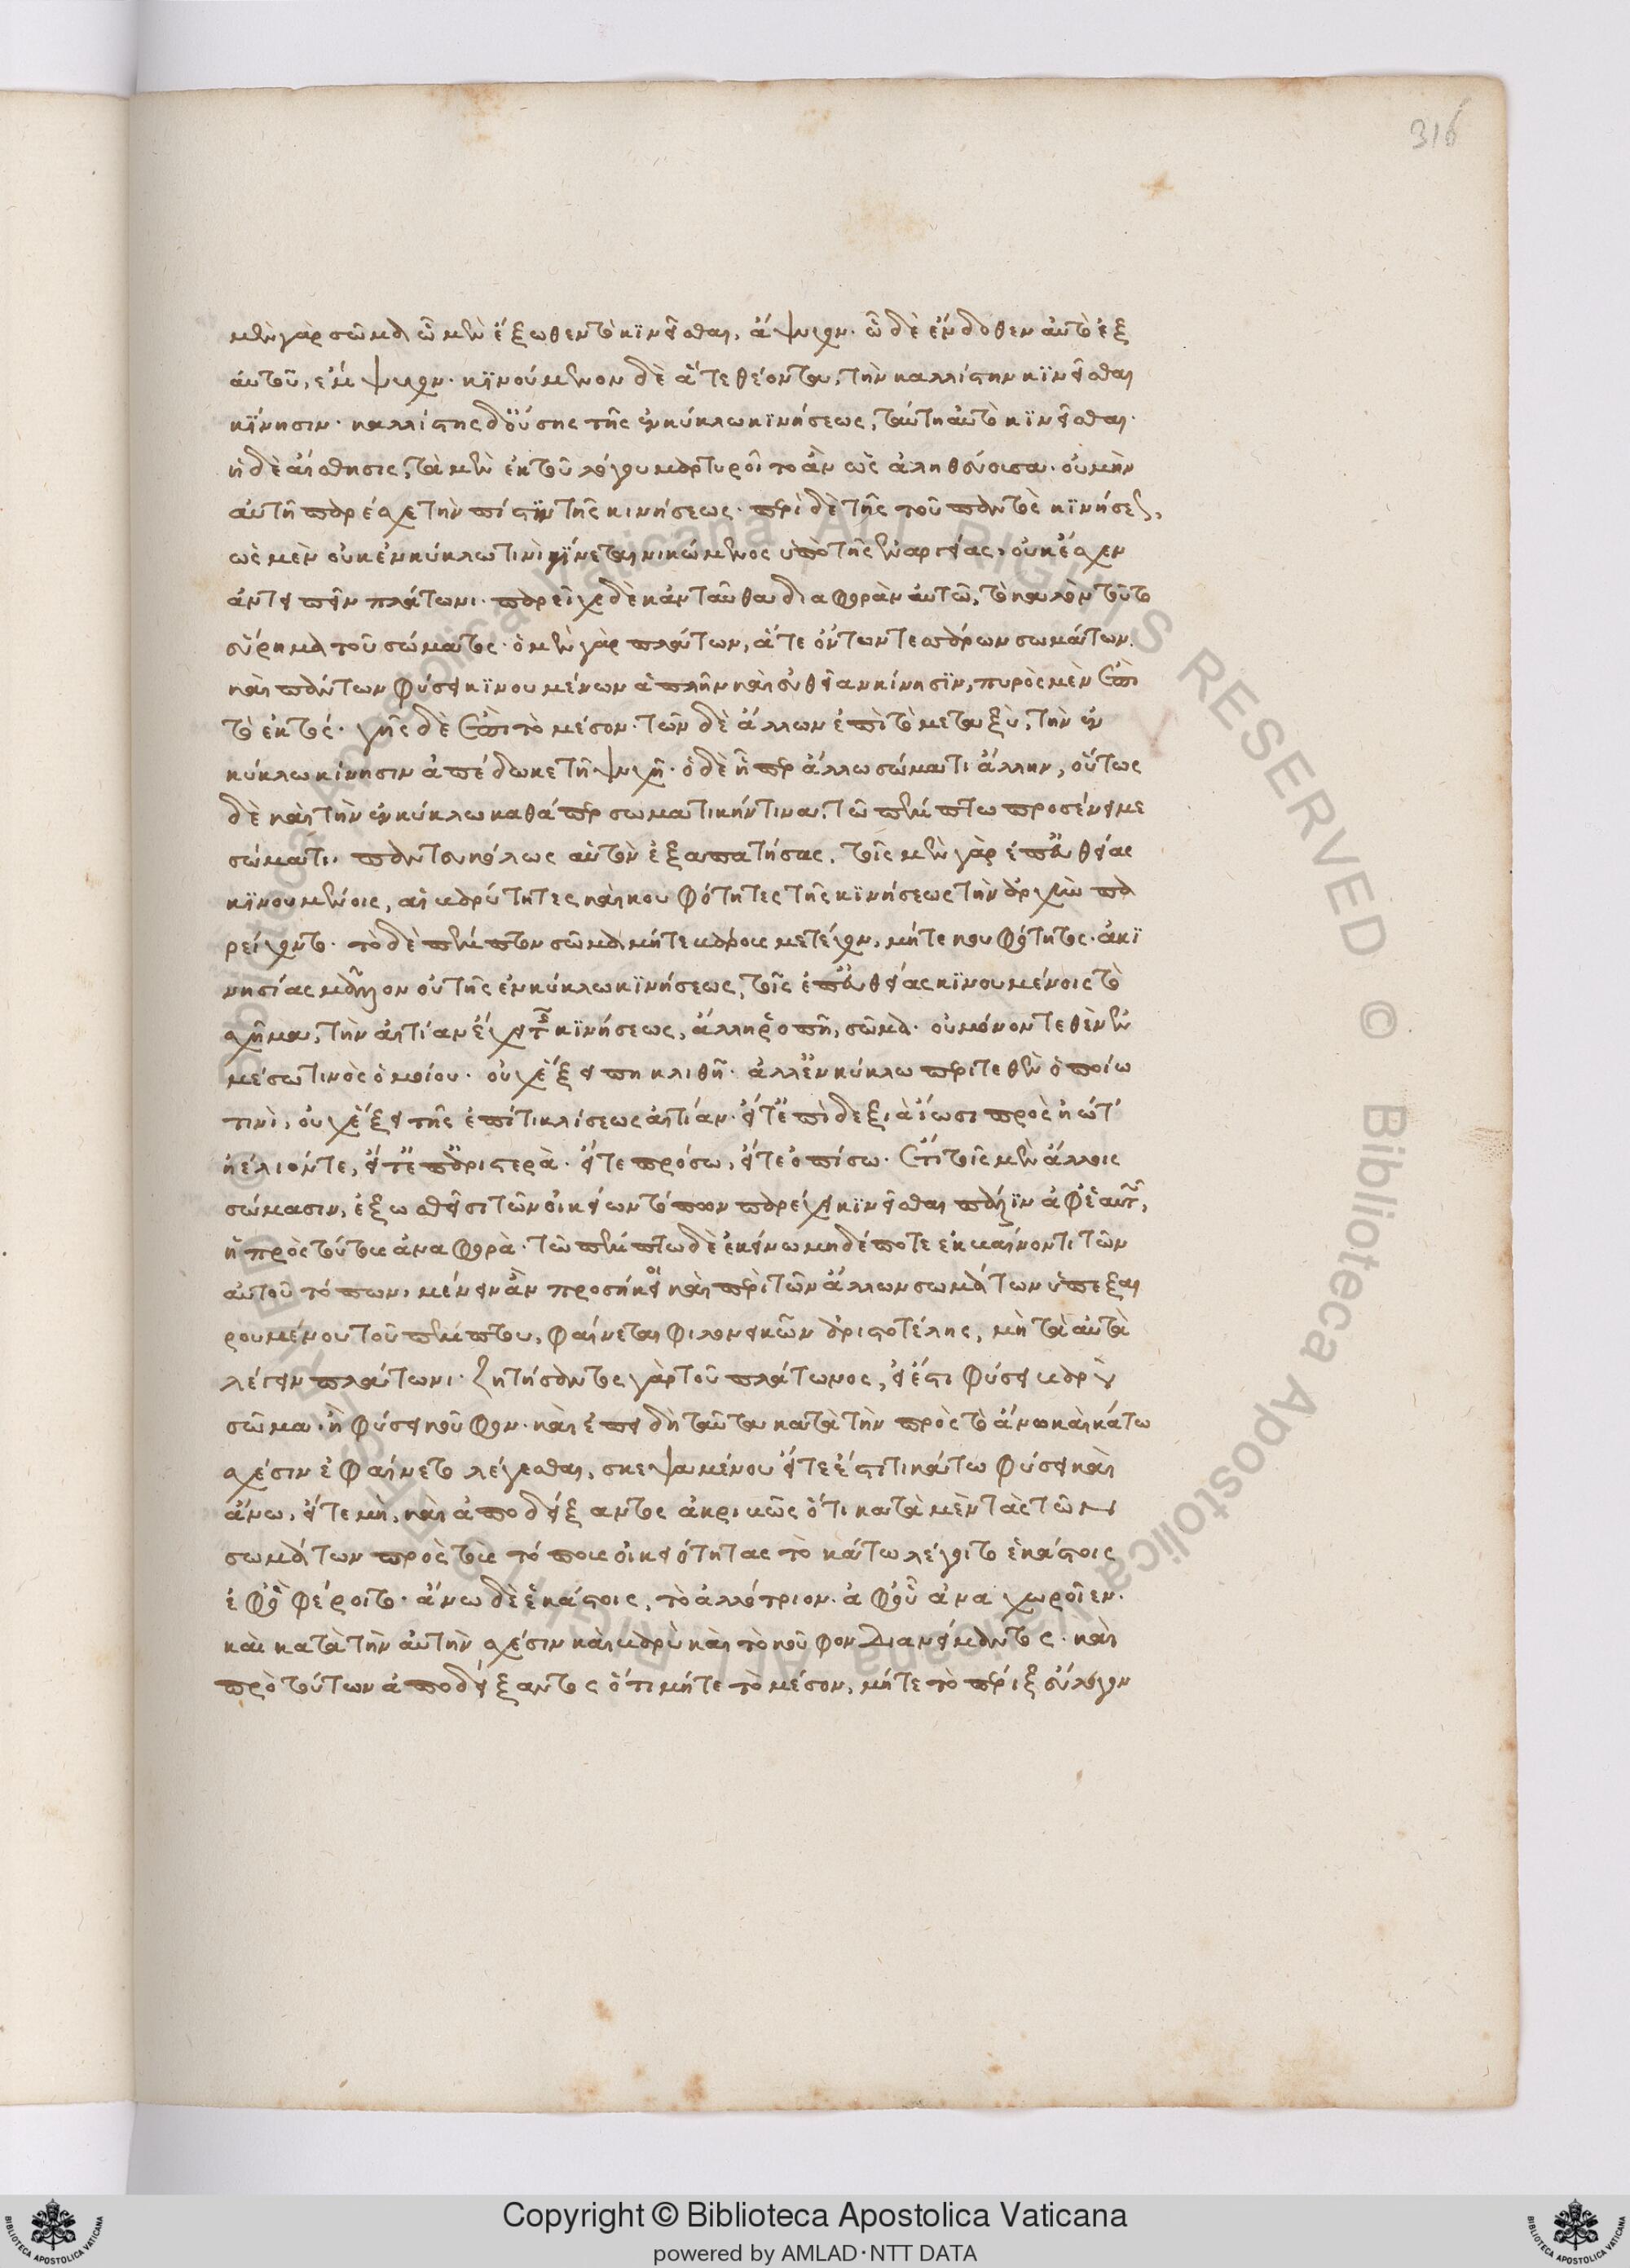 316
μὲν γὰρ σῶμα ὧ μὲν ἔξωθεν τὸ κινεῖσθαι, ἄψυχον. ὧ δὲ ἔνδοθεν αὐτὸ ἐξ
αὐτοῦ, ἔμψυχον. κινούμενον δὲ ἅτε θεῖον τὸ, τὴν καλλίστην κινεῖσθαι
κίνησιν. καλλίστης δ' οὔσης τῆς ἐν κύκλω κινήσεως, ταύτη αὐτὸ κινεῖσθαι.
ἡ δὲ αἴσθησις, τὰ μὲν ἐκ τοῦ λόγου μαρτυροῖτο ἂν ὡς ἀληθεύουσα. οὐ μὴν
αὐτὴ παρέσχε τὴν πίστιν τῆς κινήσεως. περὶ δὲ τῆς τοῦ παντὸς κινήσεως,
ὡς μὲν οὐκ ἐν κύκλω τινὶ κινεῖται νικώμενος ὑπὸ τῆς ἐναργείας, οὐκ ἔσχεν
ἀντειπεῖν πλάτωνι. παρεῖχε δὲ κἀνταῦθα διαφορὰν αὐτῶ, τὸ καλὸν τοῦτο
εὕρημα τοῦ σώματος. ὁ μὲν γὰρ πλάτων, ἅτε ὄντων τεσσάρων σωμάτων
καὶ πάντων φύσει κινουμένων ἁπλῆν καὶ εὐθεῖαν κίνησιν, πυρὸς μὲν ἐπὶ
τὸ ἐκτός. γῆς δὲ ἐπὶ τὸ μέσον. τῶν δὲ ἄλλων ἐπὶ τὸ μεταξὺ, τὴν ἐν
κύκλω κίνησιν ἀπέδωκε τῆ ψυχῆ. ὁ δὲ ἧπερ ἄλλω σώματι ἄλλην, οὕτως
δὲ καὶ τὴν ἐν κύκλω καθάπερ σωματικήν τινα, τῶ πέμπτω προσένειμε
σώματι. πάντ' εὐκόλως αὑτὸν ἐξαπατήσας. τοῖς μὲν γὰρ ἐπ' εὐθείας
κινουμένοις, αἱ βαρύτητες καὶ κουφότητες τῆς κινήσεως τὴν ἀρχὴν πα
ρείχοντο. τὸ δὲ πέμπτον σῶμα μήτε βάρους μετεῖχον, μήτε κουφότητος. ἀκι
νησίας μᾶλλον οὐ τῆς ἐν κύκλω κινήσεως, τοῖς ἐπ' εὐθείας κινουμένοις τὸ
σχῆμα, τὴν αἰτίαν ἔχει τῆς κινήσεως, ἀλλ' ἡ ῥοπὴ, σῶμα. οὐ μόνον τεθὲν ἐν
μέσω τινὸς ὁμοίου. οὐχ ἕξει πη κλιθῆ. ἀλλ' ἐν κύκλω περιτεθὲν ὁποίω
τινὶ, οὐχ ἕξει τῆς ἐπί τι κλίσεως αἰτίαν. εἴτ' ἐπὶ δεξιὰ ἴωσι πρὸς ἡῶ τ'
ἠέλιόν τε, εἴτ' ἐπ' ἀριστερά. εἴτε πρόσω, εἴτε ὀπίσω. ἔτι τοῖς μὲν ἄλλοις
σώμασιν, ἐξωσθεῖσι τῶν οἰκείων τόπων παρέχει κινεῖσθαι πάλιν ἀφ' ἑαυτῶν,
ἡ πρὸς τούτους ἀναφορὰ. τῶ πέμπτω δὲ ἐκείνω μηδέποτε ἐκβαίνοντι τῶν
αὐτοῦ τόπων, μένειν ἂν προσήκοι καὶ περὶ τῶν ἄλλων σωμάτων ὑπεξαι
ρουμένου τοῦ πέμπτου, φαίνεται φιλονεικῶν ἀριστοτέλης, μὴ τὰ αὐτὰ
λέγειν πλάτωνι. ζητήσαντος γὰρ τοῦ πλάτωνος, εἰ ἔστι φύσει βαρὺ
σῶμα, ἢ φύσει κοῦφον. καὶ ἐπειδὴ ταῦτα κατὰ τὴν πρὸς τὸ ἄνω καὶ κάτω
σχέσιν ἐφαίνετο λέγεσθαι, σκεψαμένου εἴτε ἔστι τι κάτω φύσει καὶ
ἄνω, εἴτε μὴ, καὶ ἀποδείξαντος ἀκριβῶς ὅτι κατὰ μὲν τὰς τῶν
σωμάτων πρὸς τοὺς τόπους οἰκειότητας τὸ κάτω λέγοιτο ἑκάστοις
ἐφ' ὃ φέροιτο. ἄνω δὲ ἑκάστοις, τὸ ἀλλότριον. ἀφ' οὗ ἀναχωροῖεν.
καὶ κατὰ τὴν αὐτὴν σχέσιν καὶ βαρὺ καὶ τὸ κοῦφον διανείμαντος. καὶ
πρὸ τούτων ἀποδείξαντος ὅτι μήτε τὸ μέσον, μήτε τὸ πέριξ εὔλογον
Copyright © Biblioteca Apostolica Vaticana
powered by AMLAD·NTT DATA